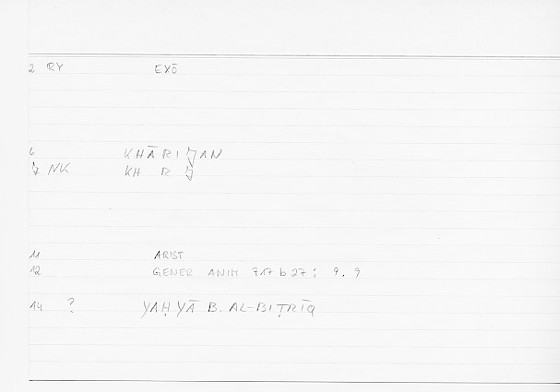 2 RY EXŌ
6 KHĀRIǦAN
7 NK KH R Ǧ
11 ARIST
12 GENER ANIM 717 b 27 ; 9. 9
14 ? YAḤYĀ B. AL-BIṬRĪQ